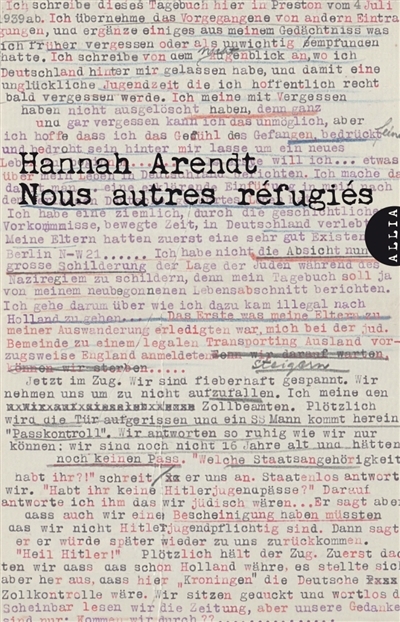 ein. Ich schreibe dieses Tagebuch hier in Preston vom 4 Juli
1939ab. Ich übernehme das Vorgegangene von andern Eintra
gungen, und ergänze einiges aus meinem Gedächtniss was
ich früher vergessen oder als unwichtig empfunden
hatte. Ich schreibe von dem Augenblick an, wo ich
Deutschland hinter mir gelassen habe, und damit eine
unglückliche Jugendzeit die ich hoffentlich recht
bald vergessen werde. Ich meine mit Vergessen
haben nicht ausgelöscht haben, denn ganz
und gar vergessen kann ich das unmöglich, aber
ich hoffe dass ich das Gefühl des Gefangen, bedrückt
und bedroht sein hinter mir lasse um ein neues
will ich... etwas
Hannah Arendt
Nous autres réfugiés
ALLIA
Ich habe eine ziemlich, durch die geschichtliche
Vorkommnisse, bewegte Zeit, in Deutschland verlebt
Meine Eltern hatten zuerst eine sehr gut Existen
Berlin N-W21...... Ich habe nicht die Absicht nun
grosse Schilderung der Lage der Juden während des
Nazireglem zu schildern, denn mein Tagebuch soll ja
von meinem neubegonnenen Lebensabschnitt berichten.
Ich gehe darum über wie ich dazu kam illegal nach
Holland zu gehen.... Das Erste was meine Eltern zu
meiner Auswanderung erledigten war, mich bei der jüd.
Gemeinde zu einem/ legalen Transporting Ausland vor-
zugsweise England anmeldeten. Wenn wir darauf warten,
können wir sterben.....
steigern
Jetzt im Zug. Wir sind fieberhaft gespannt. Wir
nehmen uns um zu nicht aufzufallen. Ich meine den
Zollbeamten. Plötzlich
wird die Tür aufgerissen und ein SS Mann kommt herein
"Passkontroll". Wir antworten so ruhig wie wir nur
können: wir sind noch nicht 16 Jahre alt und hätten
noch keinen Pass. "Welche Staatsangehörigkeit
habt ihr?!" schreit/ xx er uns an. Staatenlos antworte
wir. "Habt ihr keine Hitlerjugenpässe?" Darauf
antworte ich ihm das wir jüdisch wären...Er sagt aber
dass auch wir eine Bescheinigung haben müssten
das wir nicht Hitlerjugendpflichtig sind. Dann sagt
er er würde später wieder zu uns zurückkommen.
"Heil Hitler!" Plötzlich hält der Zug. Zuerst dac
ten wir dass das schon Holland währe, es stellte sich
aber her aus, dass hier "Kroningen" die Deutsche Pxxx
Zollkontrolle wäre. Wir sitzen geduckt und wortlos d
Scheinbar lesen wir die Zeitung, aber unsere Gedanke
sind nur: Kommen wir durch ??